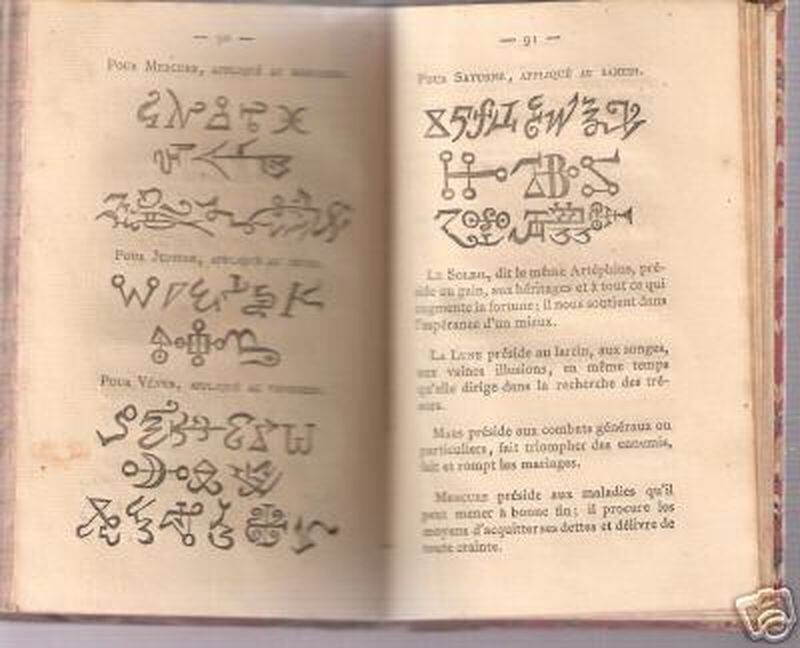 — 90 —
POUR MERCURE, APPLIQUÉ AU MERCREDI.
POUR JUPITER, APPLIQUÉ AU JEUDI.
POUR VÉNUS, APPLIQUÉ AU VENDREDI.
— 91 —
POUR SATURNE, APPLIQUÉ AU SAMEDI.
LE SOLEIL, dit le même Artéphius, pré-
side au gain, aux héritages et à tout ce qui
augmente la fortune; il nous soutient dans
l'espérance d'un mieux.
LA LUNE préside au larcin, aux songes,
aux vaines illusions, en même temps
qu'elle dirige dans la recherche des tré-
sors.
MARS préside aux combats généraux ou
particuliers, fait triompher des ennemis,
fait et rompt les mariages.
MERCURE préside aux maladies qu'il
peut mener à bonne fin; il procure les
moyens d'acquitter ses dettes et délivre de
toute crainte.